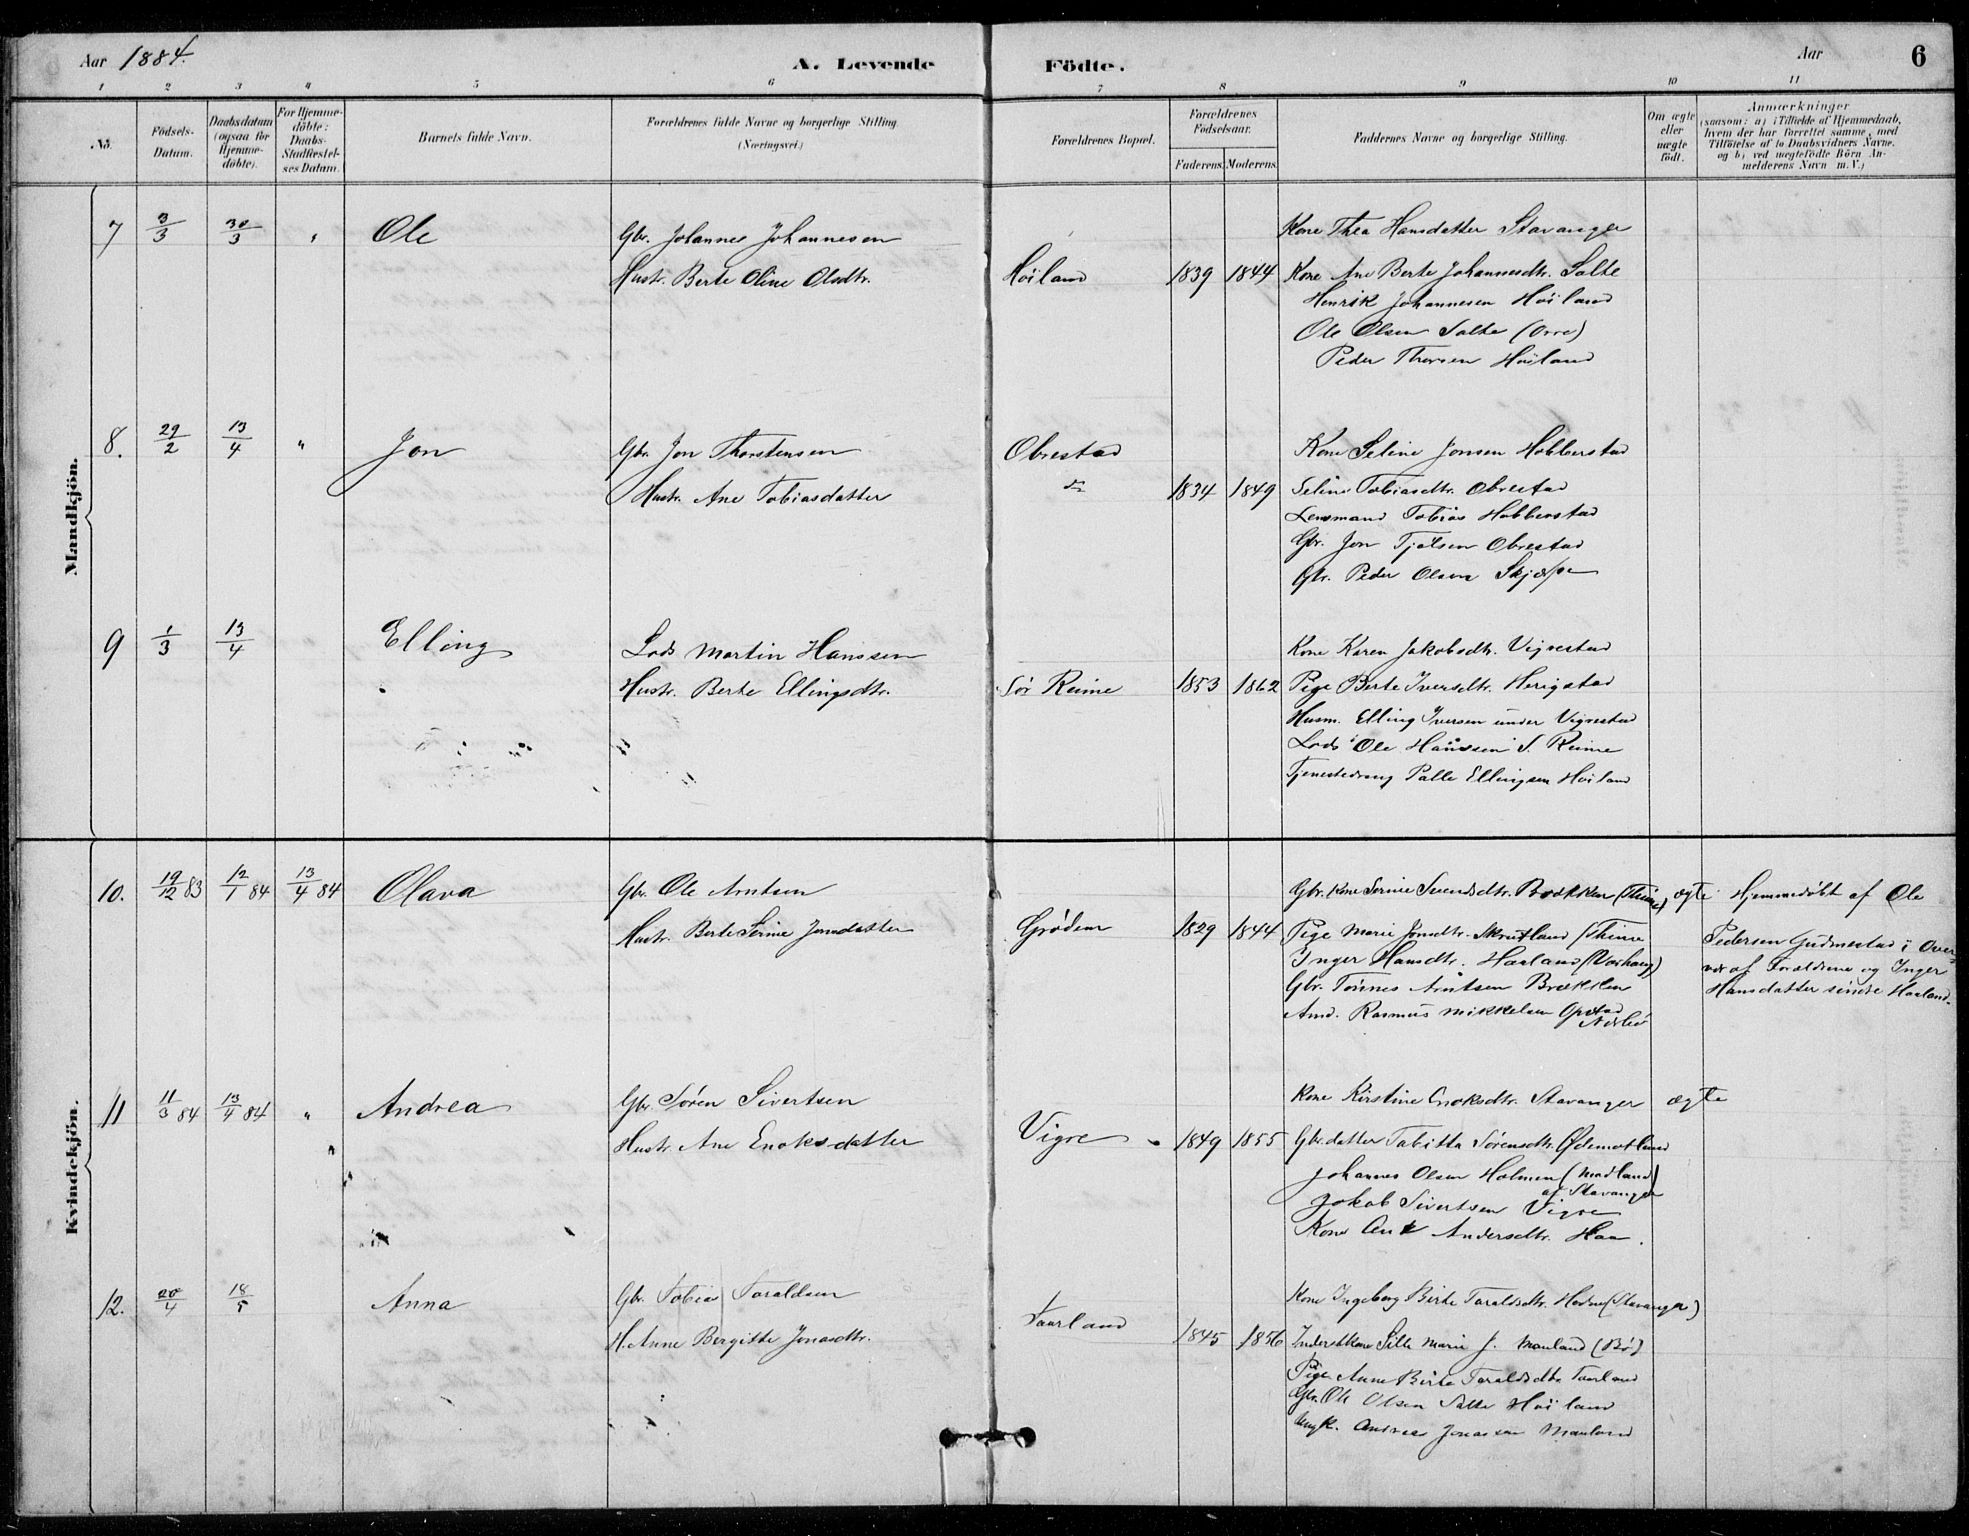 Aar 1884.
A. Levende Födte.
Aar
6
1 2 3 4 5 6 7 8 9 10 11
No.
Födsels-Datum.
Daabsdatum (ogsaa for Hjemme-döbte).
For Hjemme-döbte: Daabs-Stadfæstel-ses Datum.
Barnets fulde Navn.
Forældrenes fulde Navne og borgerlige Stilling (Næringsvei.)
Forældrenes Bopæl.
Forældrenes Födselsaar.
Faderens. Moderens.
Faddernes Navne og borgerlige Stilling.
Om ægte eller uægte födt.
Anmærkninger
(saasom: a) i Tilfælde af Hjemmedaab, hvem der har forrettet samme, med Tilföielse af to Daabsvidners Navne. og b) ved uægtefödte Börn An-melderens Navn m. V.)
Mandkjön.
7 3/3 30/3 " Ole Gbr. Johannes Johannesen
Hustr. Berte Oline Olsdtr. Høiland 1839 1844
Kone Thea Hansdatter Stavanger
Kone Ane Berte Johannesdtr. Salte
Henrik Johannesen Høiland
Ole Olsen Salte (Orre)
Peder Thorsen Høiland
8. 29/2 13/4 " Jon Gbr. Jon Thorstensen Obrestad
Hustr. Ane Tobiasdatter 1834 1849
Kone Seline Jonsen Hobberstad
Seline Tobiasdtr. Obrestad
Lensmand Tobias Hobberstad
Gbr. Jon Tjølsen Obrestad
Gbr. Peder Olsen
9 1/3 13/4 Elling Lods Martin Hanssen
Hustr. Berte Ellingsdtr. Sør Reime 1853 1862
Kone Karen Jakobsdtr. Vigrestad
Pige Berte Iversdtr. Herigstad
Husm. Elling Iversen under Vigrestad
Lods Ole Hanssen S. Reime
Tjenestedreng Palle Ellingsen Høiland
Kvindekjön.
10. 19/12 83 12/1 84 13/4 84 Olava Gbr. Ole Arntsen
Hustr. Berte Serine Jonsdatter Grødem 1829 1844
Gbr. Kone Serine Svendsdtr. Brækken (Thime) ægte
Pige Marie Jonsdtr. Skrutland (Thime
Inger Hansdtr. Haaland (Varhaug)
Gbr. Tønnes Arntsen Brækken
Rasmus Mikkelsen Opstad
Nærbø
Hjemmedøbt af Ole
Pedersen Gudmestad i Over-
vær af Forældrene og Inger
Hansdatter søndre Haaland.
11 11/3 84 13/4 84 " Andrea Gbr. Søren Sivertsen
Hustr. Ane Enoksdatter Vigre 1849 1855
Kone Kirstine Enoksdtr. Stavanger ægte
Gbr.datter Tabitta Sørensdtr. Ødemotland
Johannes Olsen Holmen (Madland)
af Stavanger
Jakob Sivertsen Vigre
Kone Ane Andersdtr. Haa.
12. 20/4 18/5 Anna Gbr. Tobias Taraldsen
H. Anne Bergitte Jonasdtr. Taarland 1845 1856
Kone Ingeborg Birte Taraldsdtr. (Stavanger)
Sille Marie J. Mauland (Bø)
Pige Anne Birte Taraldsdtr. Taarland
Gbr. Ole Olsen Salte Høiland
Ungk. Andreas Jonassen Mauland